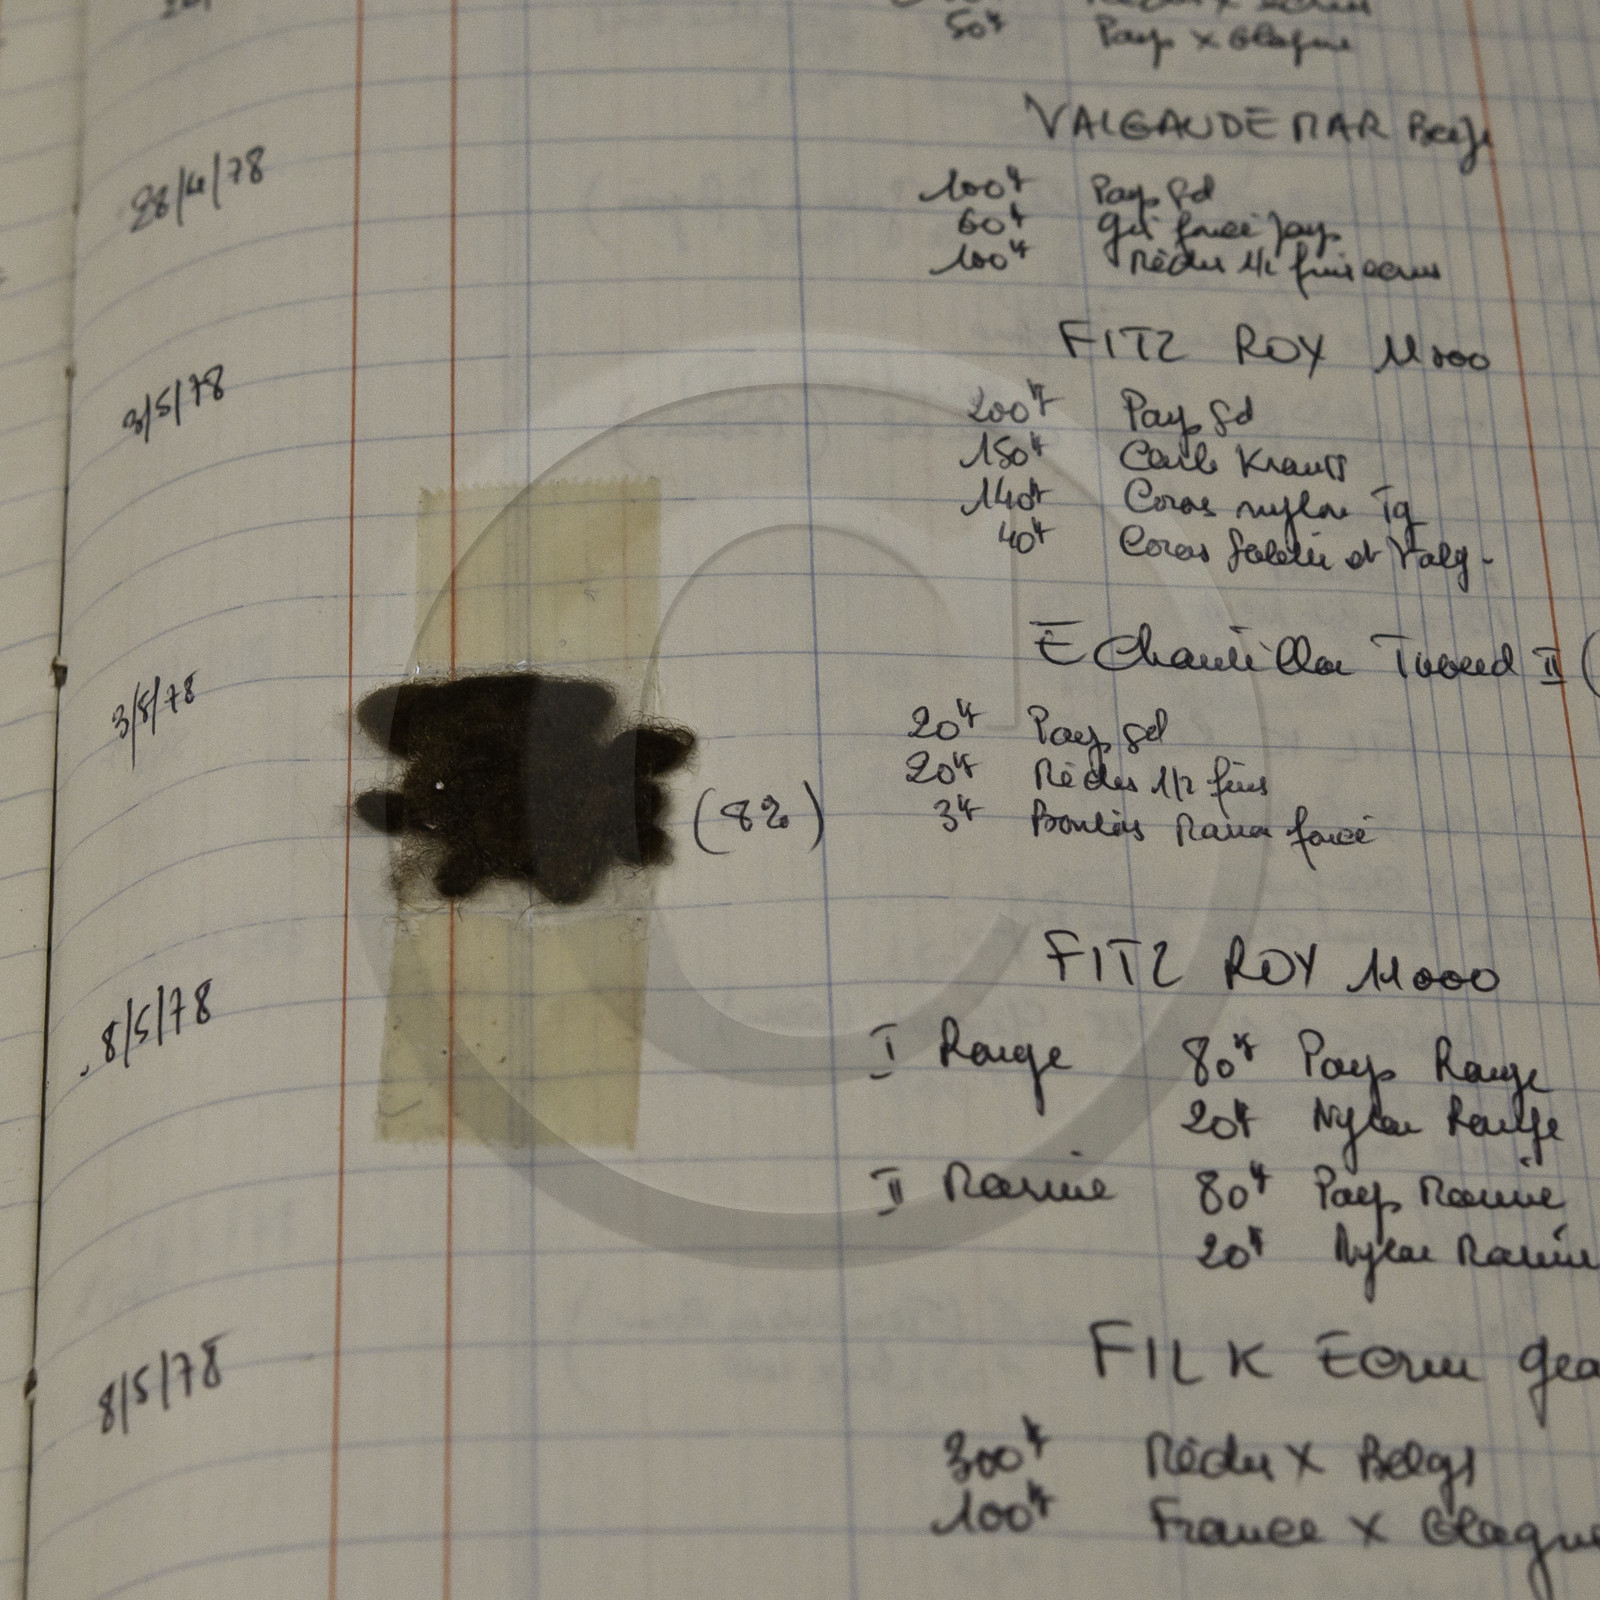 50k Pays x Glagne
VALGAUDEMAR Beige
28/4/78
100k Pays gd
60k Gris foncé Pays
100k Mèches 1/2 fines écrues
FITZ ROY 11000
3/5/78
200k Pays gd
150k Carl Krauss
140k Coras nylon Tg
40k Coras et Valg.
Echantillon Tweed II (
3/5/78
20k Pays gd
20k Mèches 1/2 fines
(8%)
3k Boutons foncé
FITZ ROY 11000
8/5/78
I Rouge 80k Pays Rouge
20k Nylon Rouge
II Marine 80k Pays Marine
20k Nylon Marine
FILK Ecru
8/5/78
300k x Belges
100k France x